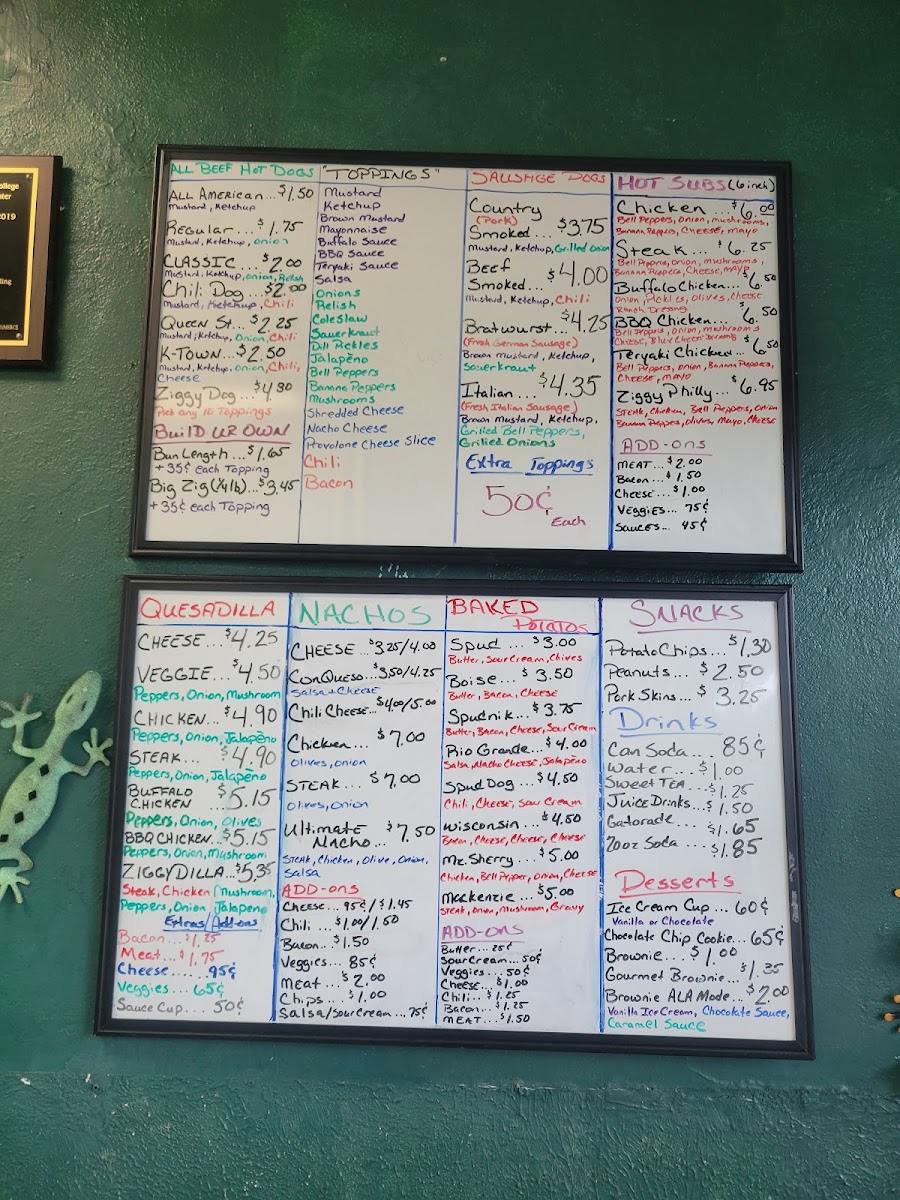 ollege
nter
2019
ALL BEEF HOT DOGS
ALL AMERICAN... $1.50
Mustard, Ketchup
Regular... $1.75
Mustard, Ketchup, onion
CLASSIC... $2.00
Mustard, Ketchup, onion, Relish
Chili Dog... $2.00
Mustard, Ketchup, Chili
Queen St... $2.25
Mustard, Ketchup, Onion, Chili
K-TOWN... $2.50
Mustard, Ketchup, onion, Chili,
Cheese
Ziggy Dog... $4.80
Pick any 10 Toppings
BUILD UR OWN
Bun Length... $1.65
+ 35¢ each Topping
Big Zig (1/4 lb)... $3.45
+ 35¢ each Topping
"TOPPINGS"
Mustard
Ketchup
Brown Mustard
Mayonnaise
Buffalo Sauce
BBQ Sauce
Teryaki Sauce
Salsa
Onions
Relish
Coleslaw
Sauerkraut
Dill Pickles
Jalapeño
Bell Peppers
Banana Peppers
Mushrooms
Shredded Cheese
Nacho Cheese
Provolone Cheese Slice
Chili
Bacon
SAUSAGE DOGS
Country
(Pork)
Smoked... $3.75
Mustard, Ketchup, Grilled Onion
Beef
Smoked... $4.00
Mustard, Ketchup, Chili
Bratwurst... $4.25
(Fresh German Sausage)
Brown Mustard, Ketchup,
Sauerkraut
Italian... $4.35
(Fresh Italian Sausage)
Brown Mustard, Ketchup,
Grilled Bell Peppers,
Grilled Onions
Extra Toppings
50¢
Each
HOT SUBS (6 inch)
Chicken... $6.00
Bell Peppers, Onion, mushrooms,
Banana Peppers, Cheese, mayo
Steak... $6.25
Bell Peppers, Onion, mushrooms,
Banana Peppers, Cheese, mayo
Buffalo Chicken... $6.50
Onion, Pickles, Olives, Cheese
Ranch Dressing
BBQ Chicken... $6.50
Bell Peppers, Onion, mushrooms
Cheese, Blue Cheese Dressing
Teryaki Chicken... $6.50
Bell Peppers, onion, Banana Peppers,
Cheese, Mayo
Ziggy Philly... $6.95
Steak, Chicken, Bell Peppers, Onion
Banana Peppers, Olives, Mayo, Cheese
ADD-ONS
MEAT... $2.00
Bacon... $1.50
Cheese... $1.00
Veggies... 75¢
Sauces... 45¢
QUESADILLA
CHEESE... $4.25
VEGGIE... $4.50
Peppers, Onion, Mushroom
CHICKEN... $4.90
Peppers, Onion, Jalapeño
STEAK... $4.90
Peppers, Onion, Jalapeño
BUFFALO
CHICKEN... $5.15
Peppers, Onion, Olives
BBQ CHICKEN... $5.15
Peppers, Onion, Mushroom
ZIGGYDILLA... $5.35
Steak, Chicken, Mushroom,
Peppers, Onion Jalapeno
Extras/Add-ons
Bacon... $1.25
Meat... $1.75
Cheese..... 95¢
Veggies... 65¢
Sauce Cup... 50¢
NACHOS
CHEESE... $3.25/4.00
ConQueso... $3.50/4.25
Salsa + Cheese
Chili Cheese... $4.00/5.00
Chicken... $7.00
Olives, onion
STEAK... $7.00
Olives, onion
Ultimate
Nacho... $7.50
STEAK, Chicken, Olive, Onion,
Salsa
ADD-ons
Cheese... 95¢/$1.45
Chili... $1.00/1.50
Bacon... $1.50
Veggies... 85¢
meat... $2.00
Chips... $1.00
Salsa/Sour Cream... 75¢
BAKED
POTATOS
Spud... $3.00
Butter, Sour Cream, Chives
Boise... $3.50
Butter, Bacon, Cheese
Spudnik... $3.75
Butter, Bacon, Cheese, Sour Cream
Rio Grande... $4.00
Salsa, Nacho Cheese, Jalapeño
Spud Dog... $4.50
Chili, Cheese, Sour Cream
Wisconsin... $4.50
Bacon, Cheese, Cheese, Cheese
Mr. Sherry... $5.00
Chicken, Bell Pepper, Onion, Cheese
Mackenzie... $5.00
Steak, Onion, Mushroom, Gravy
ADD-ONS
Butter... 25¢
Sour Cream... 50¢
Veggies... 50¢
Cheese... $1.00
Chili... $1.25
Bacon... $1.25
MEAT... $1.50
SNACKS
Potato Chips... $1.30
Peanuts... $2.50
Pork Skins... $3.25
Drinks
Can Soda... 85¢
Water... $1.00
Sweet TEA... $1.25
Juice Drinks... $1.50
Gatorade... $1.65
20oz Soda... $1.85
Desserts
Ice Cream Cup... 60¢
Vanilla or Chocolate
Chocolate Chip Cookie... 65¢
Brownie... $1.00
Gourmet Brownie... $1.35
Brownie ALA Mode... $2.00
Vanilla Ice Cream, Chocolate Sauce,
Caramel Sauce